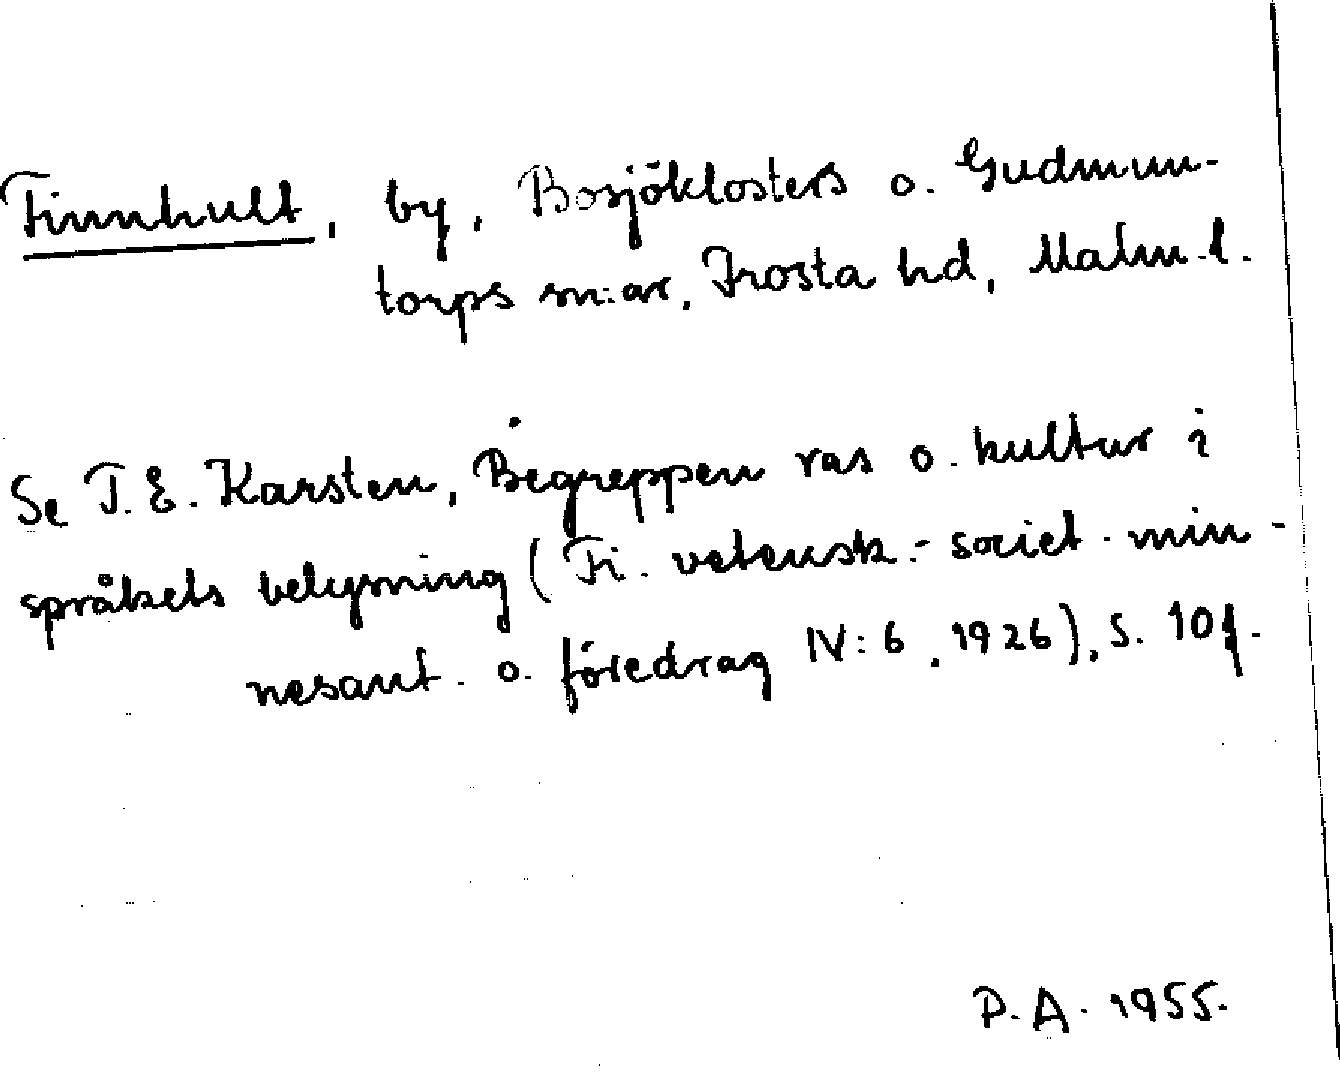 Finnhult, by, Bosjöklosters o. Gudmun-
torps sn:ar, Frosta hd, Malm. l.
Se T. E. Karsten, Begreppen ras o. kultur i
språkets belysning (Fi. vetensk.-societ. min-
nesant. o. föredrag IV:6, 1926), s. 10f.
P. A. 1955.